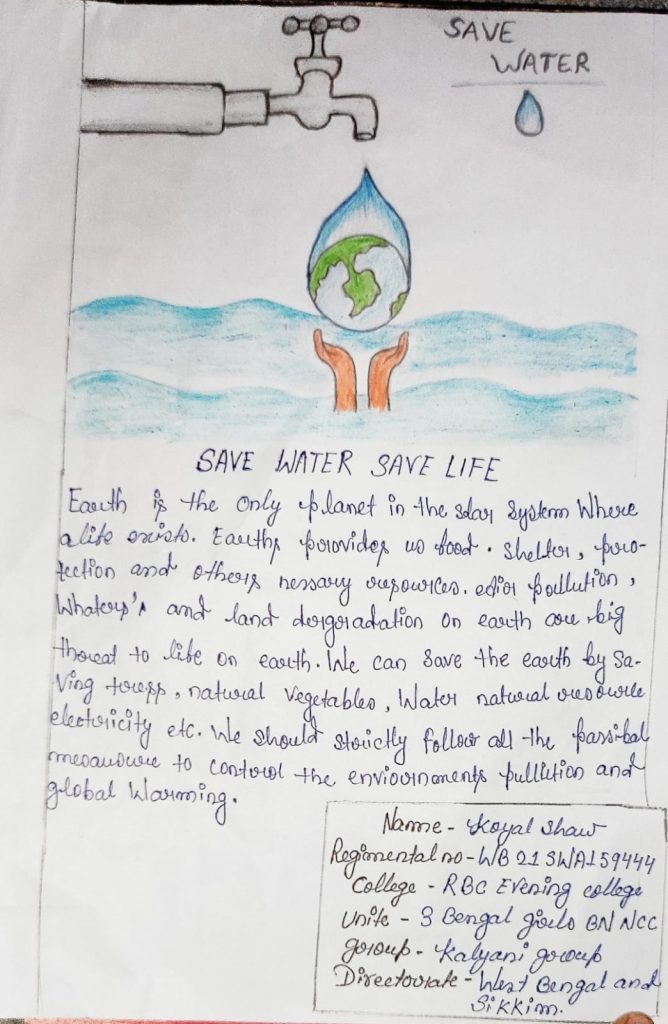 SAVE
WATER
SAVE WATER SAVE LIFE
Earth is the only planet in the solar system Where
a life exists. Earths provides us food. shelter, pro-
tection and others nessary resources. edior pollution,
and land dergradation on earth are big
thread to life on earth. We can save the earth by sa-
ving trees, natural vegetables, Water natural resource
electricity etc. We should strictly follow all the passibal
to control the enviornments pullution and
global Warming.
Name - Koyal Shaw
Regimental no - WB21SWA159444
College - RBC Evening college
Unite - 3 Bengal girls BN NCC
group - Kalyani group
Directorate - West Bengal and
Sikkim.